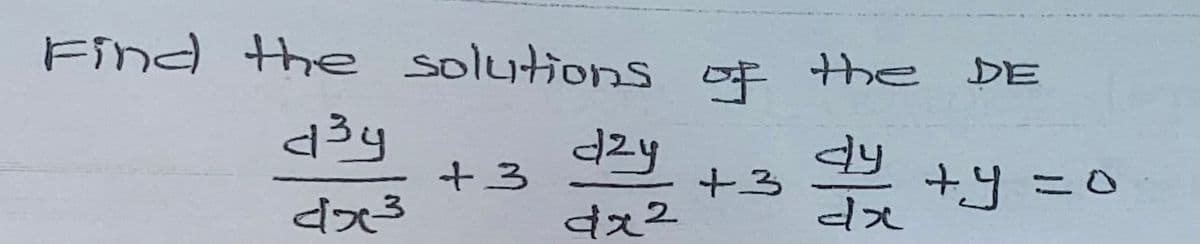 Find the solutions of the DE
d³y/dx³ + 3 d2y/dx² + 3 dy/dx + y = 0